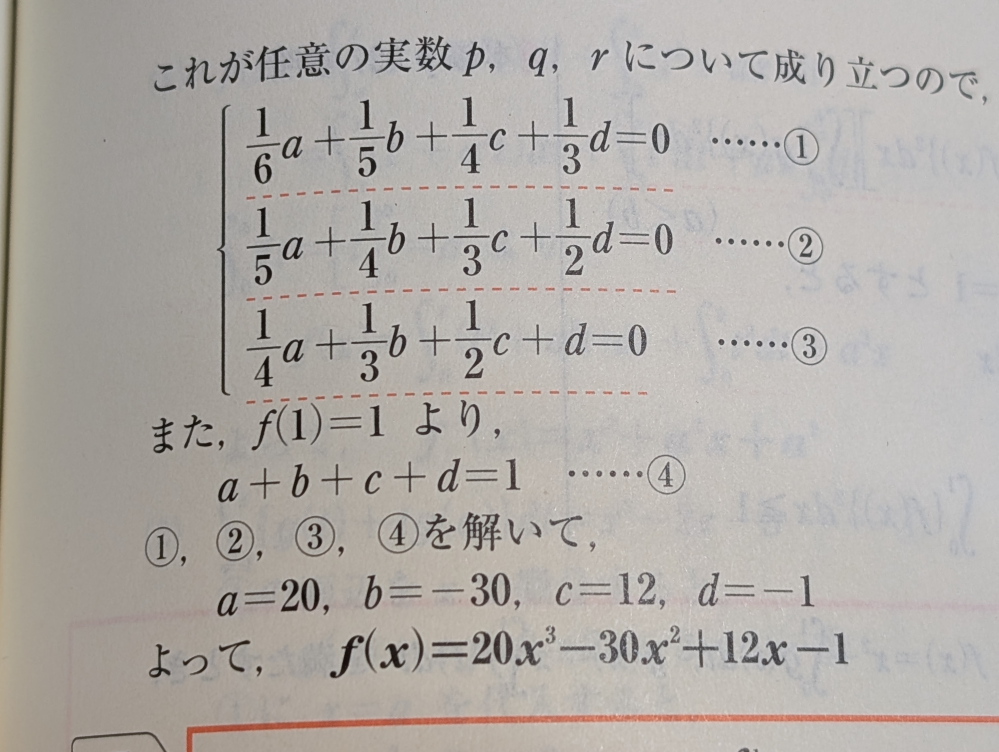 これが任意の実数 p, q, r について成り立つので,
1/6 a + 1/5 b + 1/4 c + 1/3 d = 0 ……①
1/5 a + 1/4 b + 1/3 c + 1/2 d = 0 ……②
1/4 a + 1/3 b + 1/2 c + d = 0 ……③
また, f(1)=1 より,
a + b + c + d = 1 ……④
①, ②, ③, ④を解いて,
a=20, b=−30, c=12, d=−1
よって, f(x)=20x³−30x²+12x−1